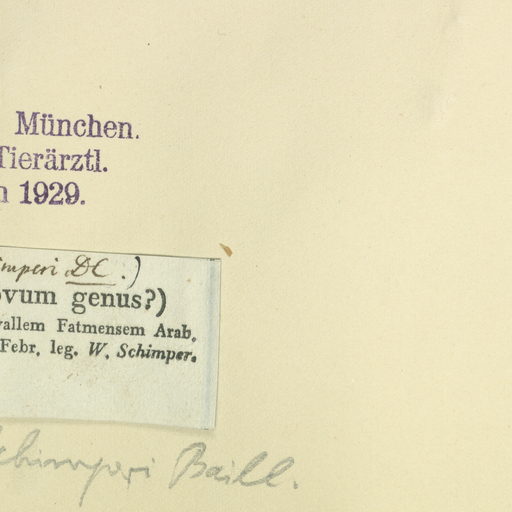 München.
Tierärztl.
n 1929.
imperi DC.)
ovum genus?)
vallem Fatmensem Arab.
Febr. leg. W. Schimper.
chimperi Baill.